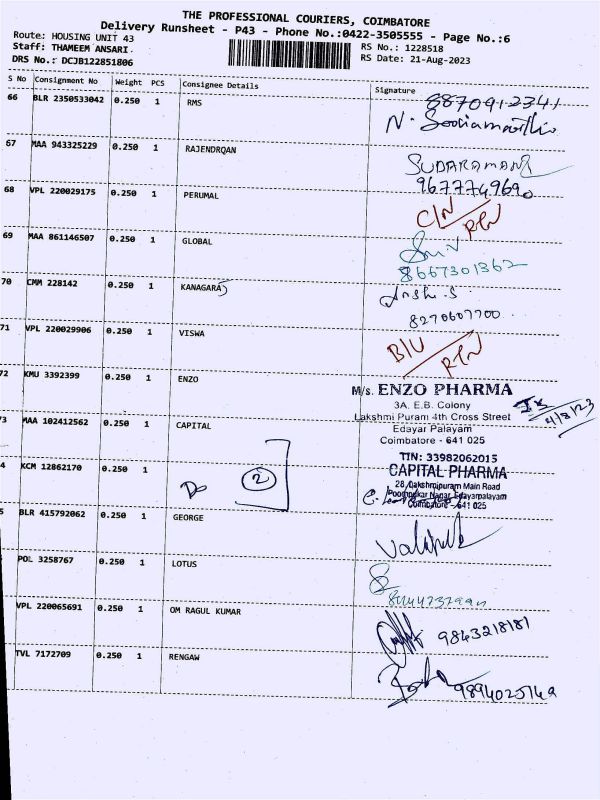 THE PROFESSIONAL COURIERS, COIMBATORE
Delivery Runsheet - P43 - Phone No.:0422-3505555 - Page No.:6
Route: HOUSING UNIT 43
Staff: THAMEEM ANSARI.
DRS No.: DCJB122851806
RS No.: 1228518
RS Date: 21-Aug-2023
S No Consignment No Weight PCS Consignee Details Signature
66 BLR 2350533042 0.250 1 RMS 8870912341
N.
67 MAA 943325229 0.250 1 RAJENDRQAN SUDARAMANI
9677749690
68 VPL 220029175 0.250 1 PERUMAL C/N RTN
69 MAA 861146507 0.250 1 GLOBAL
8667301362
70 CMM 228142 KANAGARAJ
8270607700
71 VPL 220029906 0.250 1 VISWA B/U RTN
72 KMU 3392399 0.250 1 ENZO M/s. ENZO PHARMA
3A, E.B. Colony
Lakshmi Puram 4th Cross Street
Edayar Palayam
Coimbatore - 641 025
4/8/23
3 MAA 102412562 0.250 1 CAPITAL TIN: 33982062015
CAPITAL PHARMA
28, Lakshmipuram Main Road
Poompukar Nagar, Edayarpalayam
Coimbatore - 641 025
4 KCM 12862170 0.250 1 2
5 BLR 415792062 0.250 1 GEORGE
POL 3258767 0.250 1 LOTUS
VPL 220065691 0.250 1 OM RAGUL KUMAR 9843218181
TVL 7172709 0.250 1 RENGAW